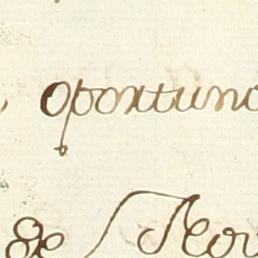 oportuno
de Nov